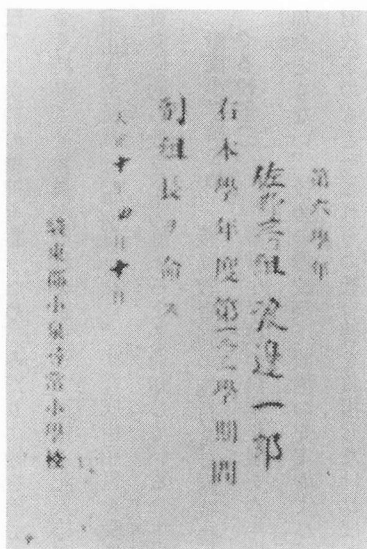 第六學年
沢邉一郎
右本學年度第一、二學期間
副組長ヲ命ス
大正十年四月十日
東郡小泉尋常小學校